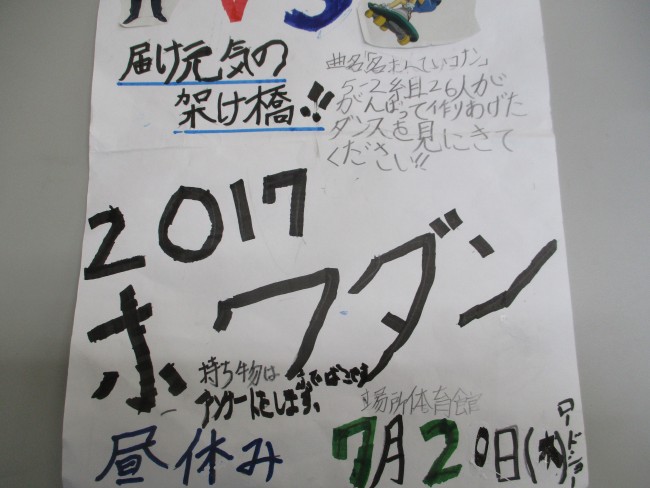 VS
届け元気の
架け橋!!
曲名「名たんていコナン」
5-2組目26人が
がんばって作りあげた
ダンスを見にきて
ください!!
2017
ホワダン
持ち物は ふでばこです
アンケートたします。
場所体育館
昼休み 7月20日(木)
ロードショー